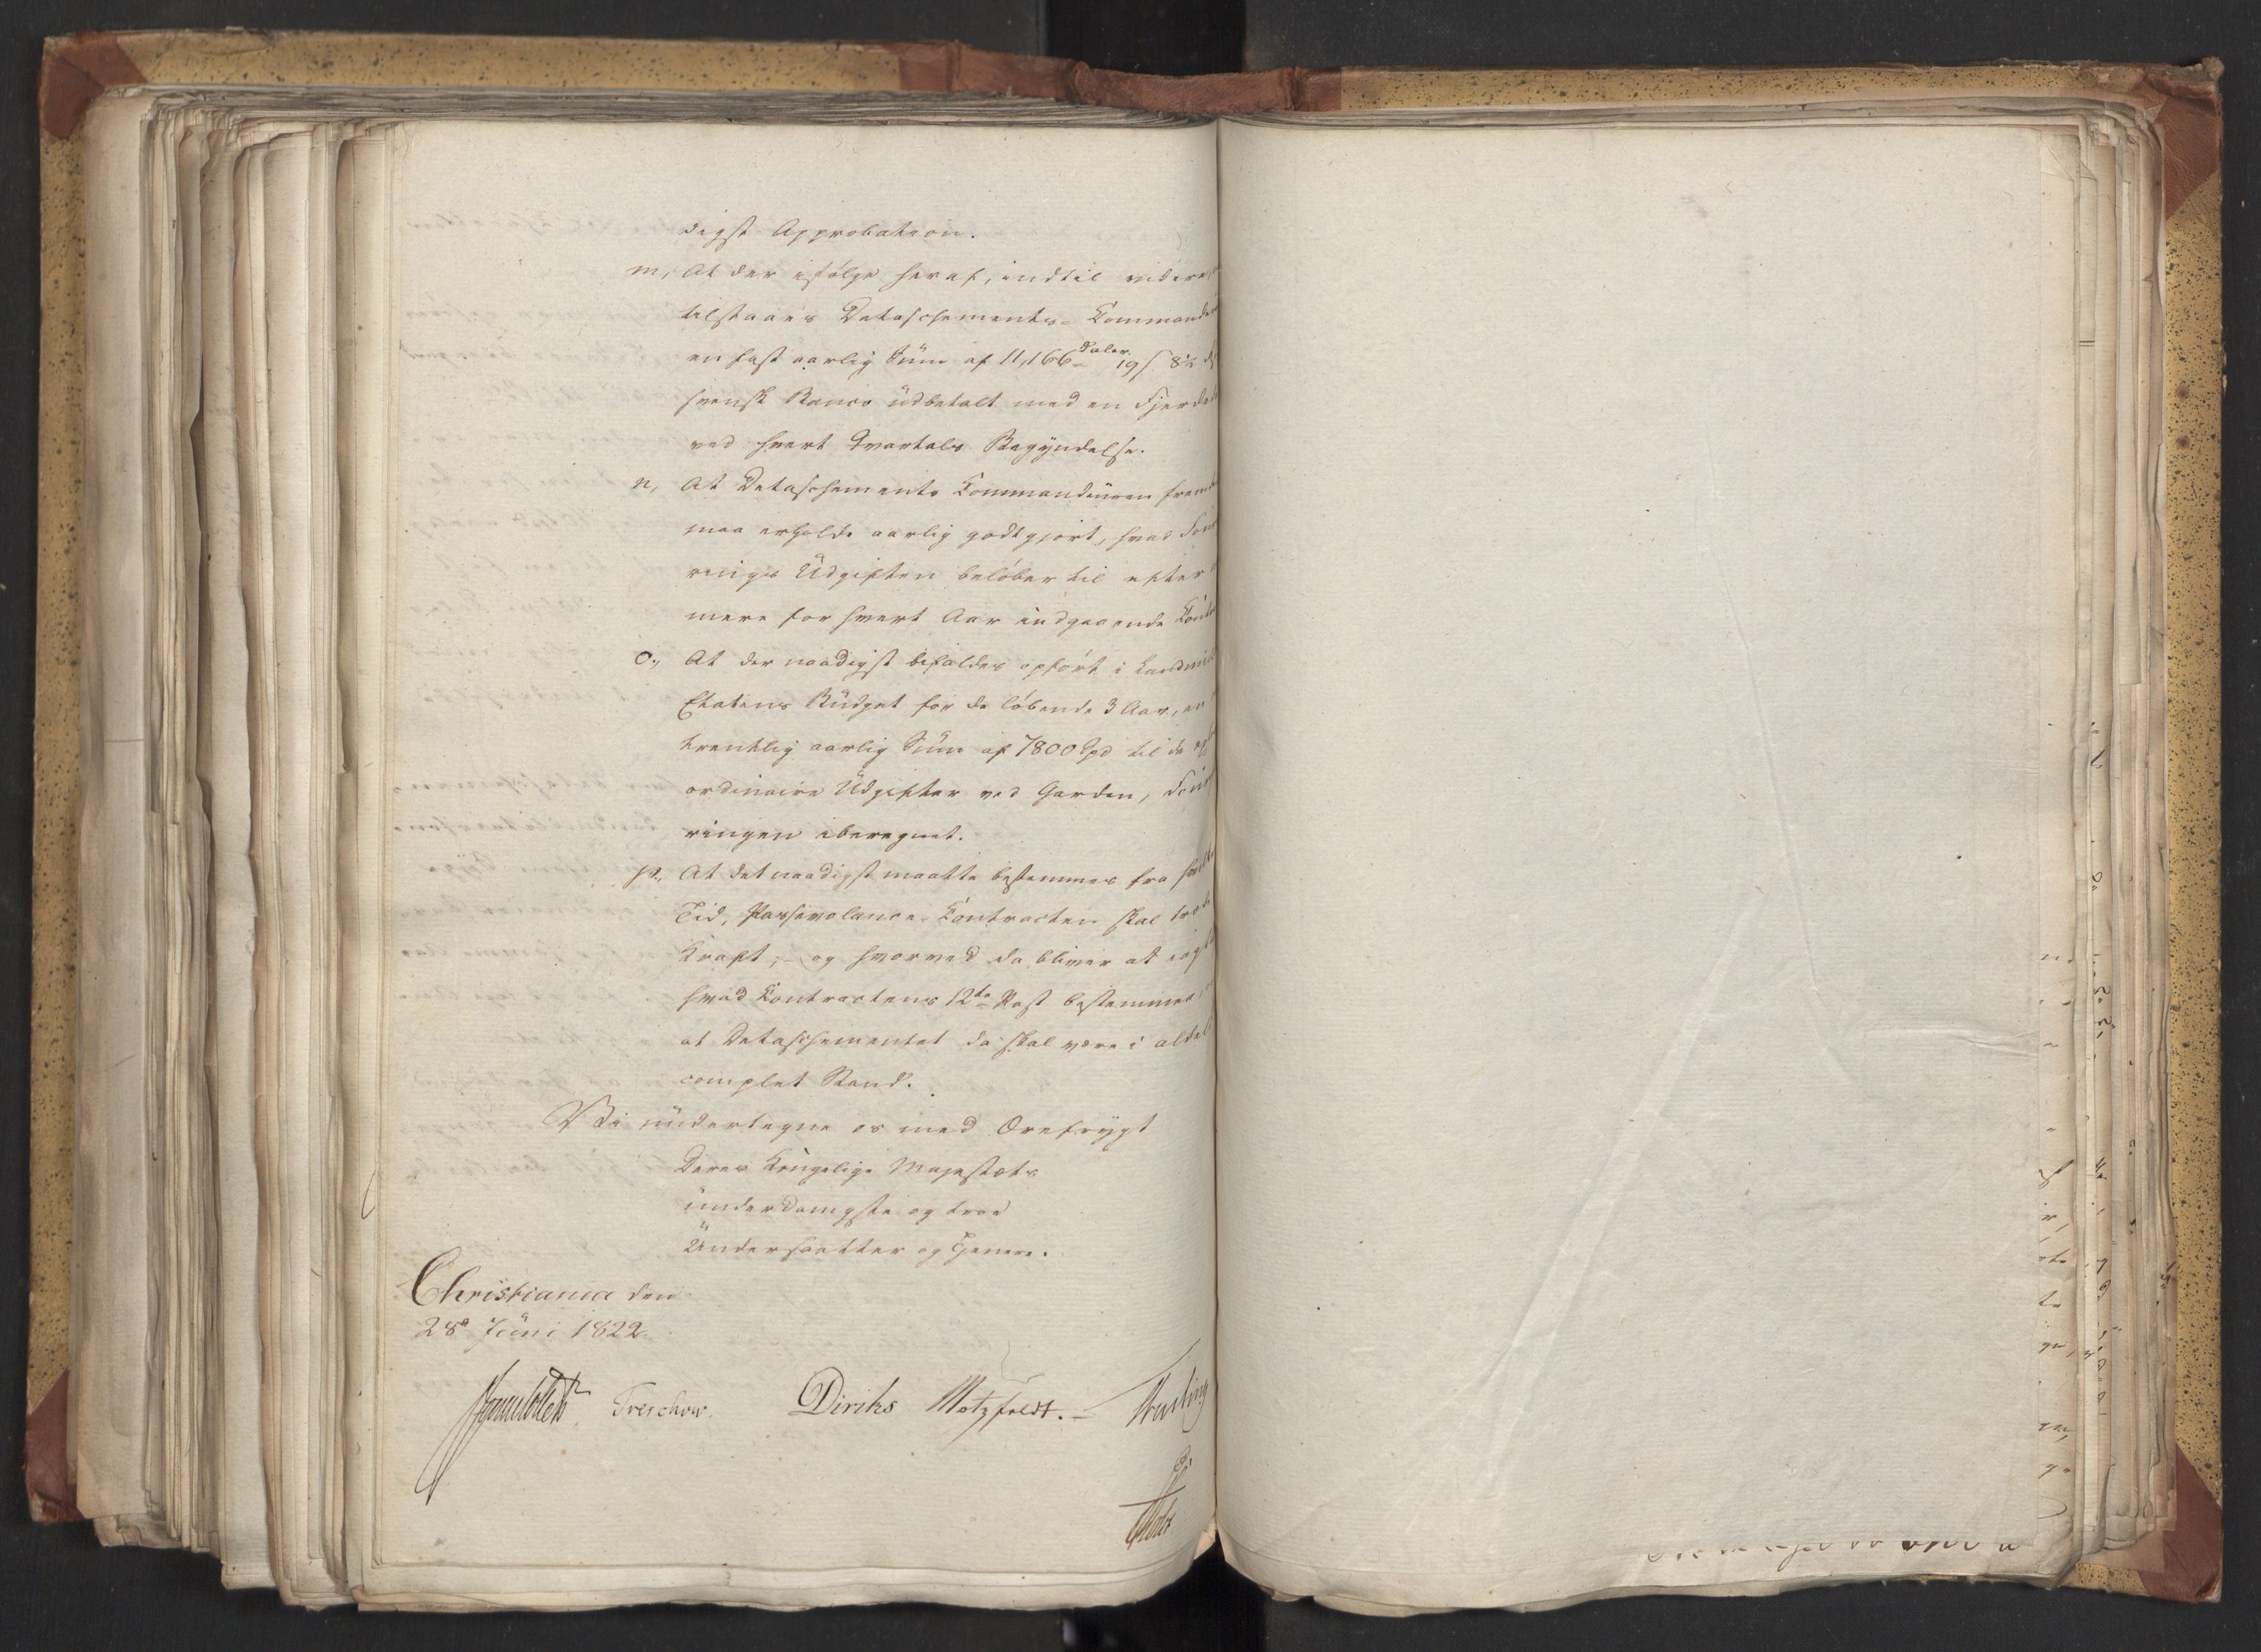 digst Approbation.
m, At der ifølge heraf, indtil videre
tilstaaes Detaschements-Kommandeu
en fast aarlig Sum af 11,166 Daler 19 s 8½
svensk Banco udbetalt med en Fjerde
ved hvert Qvartals Begyndelse.
n, At Detaschements Kommandeuren frem
maa erholde aarlig godtgjort, hvad Fou
rings Udgiften beløber til efter
mere for hvert Aar indgaaende Kont
o., At der naadigst befaldes opført i Landmil
Etatens Budget for de løbende 3 Aar, en
trentlig aarlig Sum af 7800 Spd til de
ordinaire Udgifter ved Garden, Four
ringen iberegnet.
p., At det naadigst maatte bestemmes fra hvilke
Tid, Passevolance-Contracten skal træde
Kraft; - og hvorved da bliver at iagt
hvad Kontractens 12te Post bestemmer,
at Detaschementet da skal være i aldel
complet Stand.
Vi undertegne os med Ærefrygt
Deres Kongelige Majestæts
underdanigste og troe
Undersaatter og Tjenere.
Christiania den
28de Juni 1822.
Treschow. Diriks Motzfeldt. -
Holst